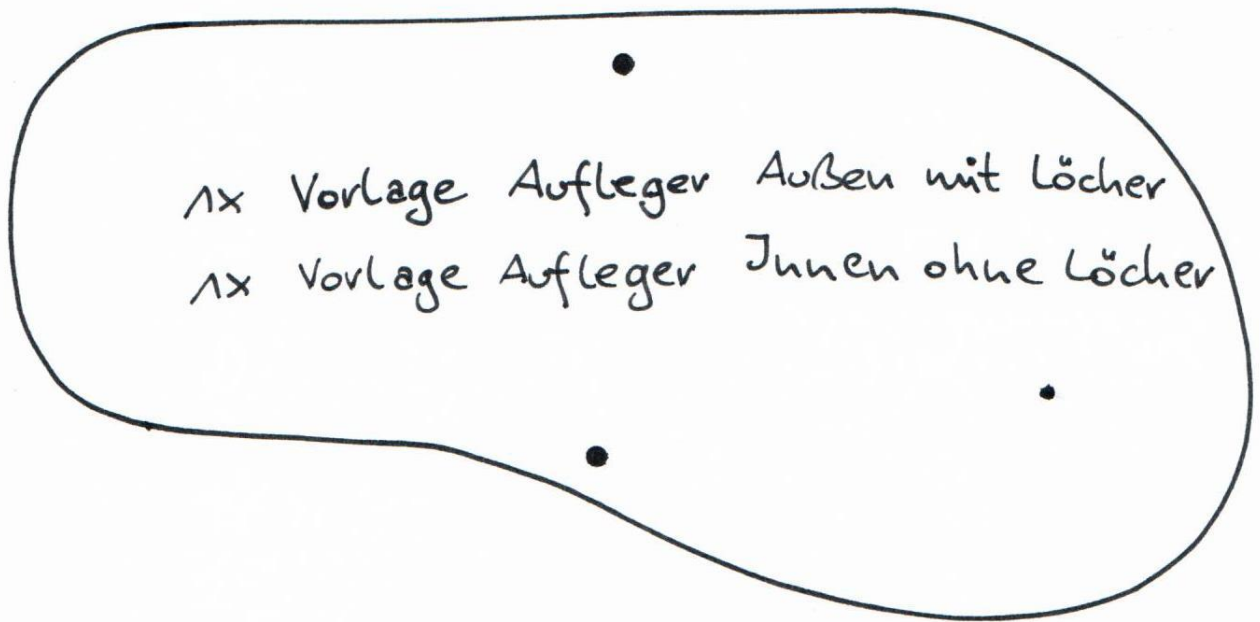 1x Vorlage Aufleger Außen mit Löcher
1x Vorlage Aufleger Innen ohne Löcher